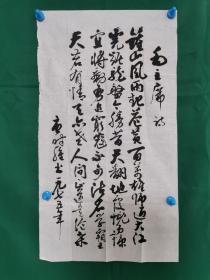 毛主席诗
鍾山風雨起蒼黄百万雄师过大江
虎踞龍盤今勝昔天翻地覆慨而慷
宜将剩勇追窮寇不可沽名学霸王
天若有情天亦老人间正道是滄桑
书一九七五年